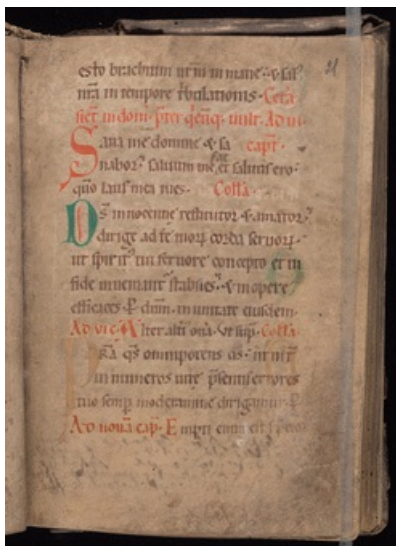 21
esto brachium nr̄m in mane · & sal
nr̄a in tempore tribulationis · Cetera
in dom· Ad vi·
Sana me domine & sa capt̄·
nabor· salvum me fac et salvus ero·
qm̄ laus mea tu es· Coll̄a·
Ds̄ innocentie restitutor & amator·
dirige ad te tuorꝝ corda servorꝝ·
ut spiritꝰ tui fervore concepto et in
fide inveniant̄ stabiles· & in opere
efficaces· P dnm̄· in unitate eiusdem·
Alter alti͞ on̄a · Ut sup· Coll̄a·
qs̄ omnipotens ds̄· ut int̄
innumeros vite p̄sentis errores
tuo semp̄ moderamine dirigamur· P
Ad nonā cap· Empti enim estis